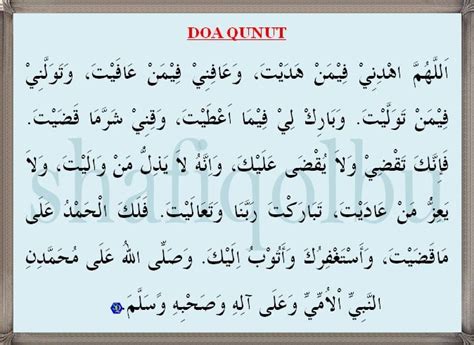 DOA QUNUT
اَللَّهُمَّ اهْدِنِيْ فِيْمَنْ هَدَيْتَ، وَعَافِنِيْ فِيْمَنْ عَافَيْتَ، وَتَوَلَّنِيْ
فِيْمَنْ تَوَلَّيْتَ. وَبَارِكْ لِيْ فِيْمَا اَعْطَيْتَ، وَقِنِيْ شَرَّمَا قَضَيْتَ.
فَاِنَّكَ تَقْضِيْ وَلاَ يُقْضَى عَلَيْكَ، وَاِنَّهُ لاَ يَذِلُّ مَنْ وَالَيْتَ، وَلاَ
يَعِزُّ مَنْ عَادَيْتَ، تَبَارَكْتَ رَبَّنَا وَتَعَالَيْتَ. فَلَكَ الْحَمْدُ عَلَى
مَاقَضَيْتَ، وَأَسْتَغْفِرُكَ وَأَتُوْبُ اِلَيْكَ. وَصَلَّى اللهُ عَلَى مُحَمَّدِنِ
النَّبِيِّ اْلأُمِّيِّ وَعَلَى آلِهِ وَصَحْبِهِ وَسَلَّمَ.
shafiqolbu